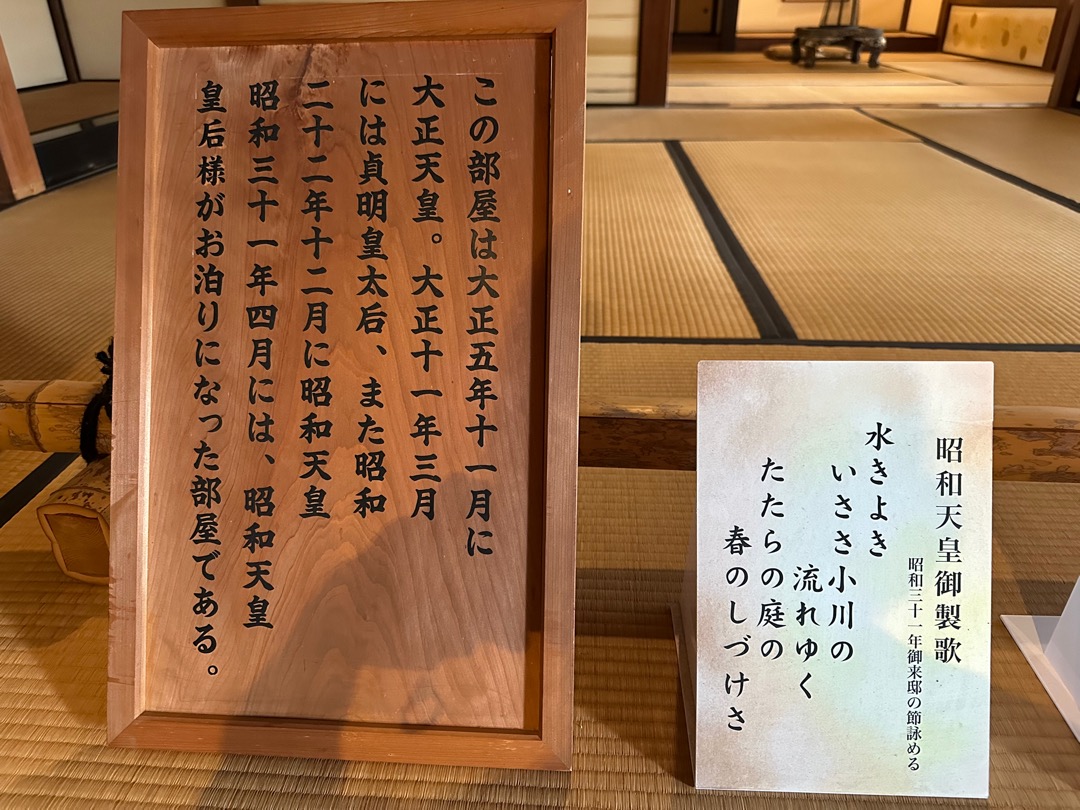 この部屋は大正五年十一月に
大正天皇。大正十一年三月
には貞明皇太后、また昭和
二十二年十二月に昭和天皇
昭和三十一年四月には、昭和天皇
皇后様がお泊りになった部屋である。
昭和天皇御製歌
昭和三十一年御来邸の節詠める
水きよき
いささ小川の
流れゆく
たたらの庭の
春のしづけさ